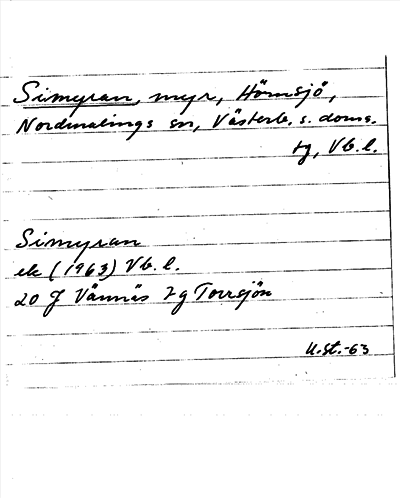 Simyran, myr, Hörnsjö,
Nordmalings sn, Västerb. s. doms.
tg, Vb. l.
Simyran
ek (1963) Vb. l.
20 J Vännäs 7g Torrsjön
U.st.-63